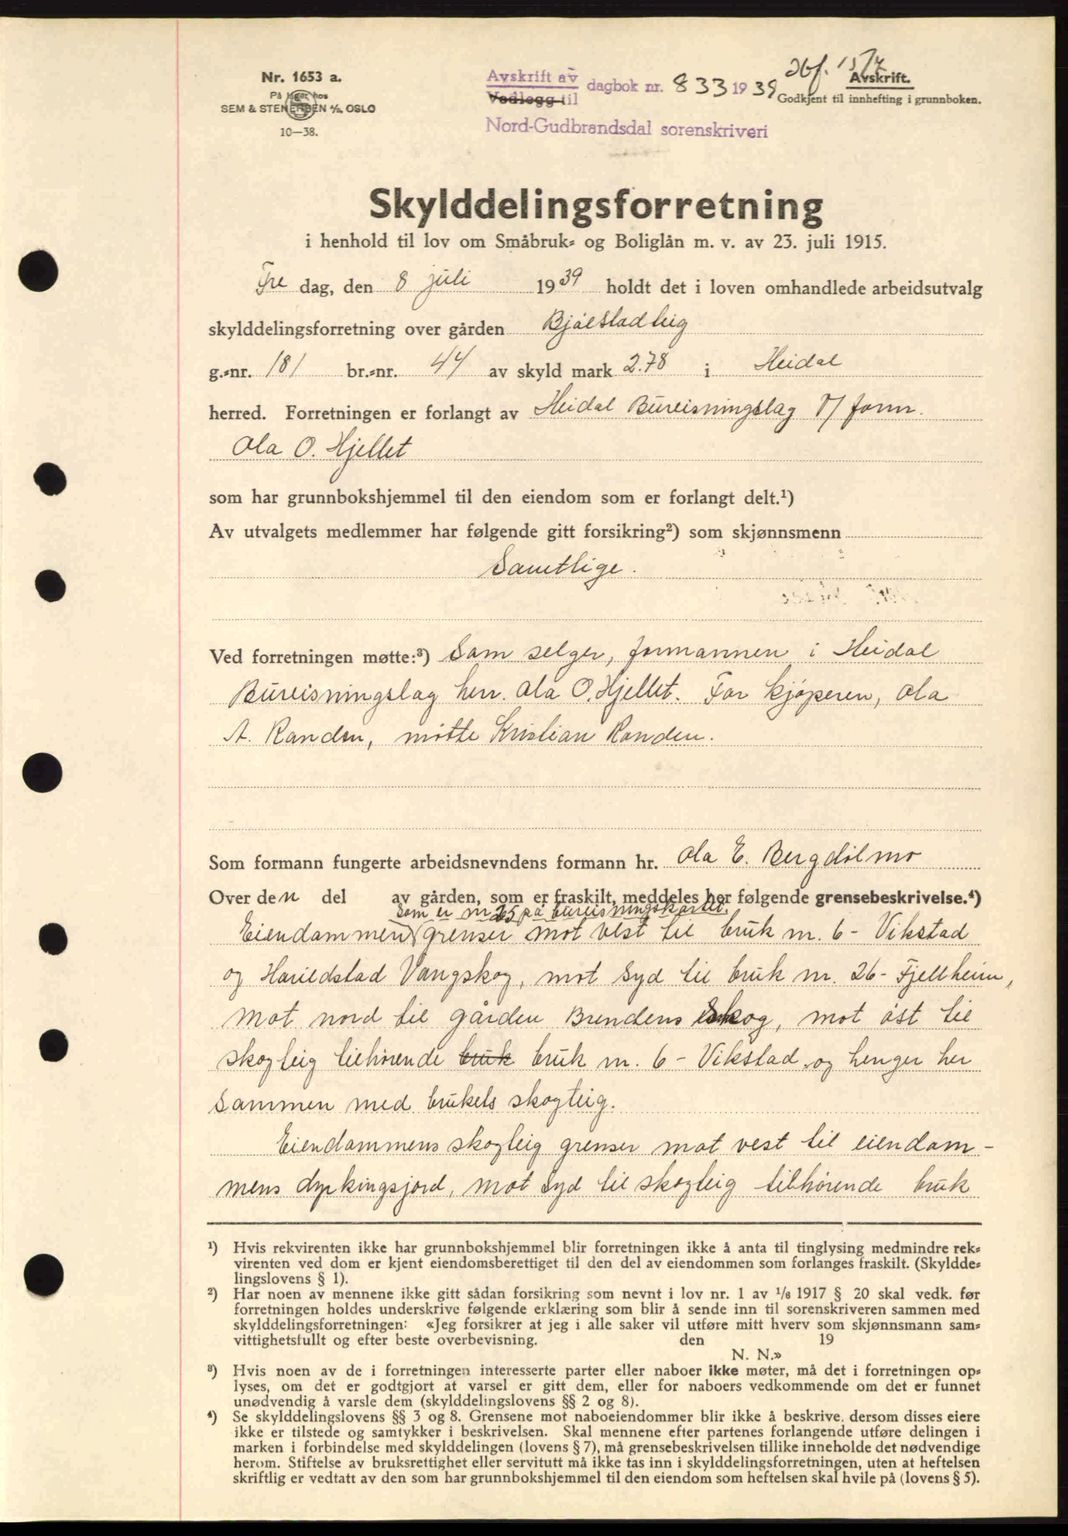 Nr. 1653 a.
På lager hos
SEM & STENERSEN A/S, OSLO
10—38.
Avskrift av
Vedlegg til
dagbok nr. 833 1939
Nord-Gudbrandsdal sorenskriveri
Avskrift.
Godkjent til innhefting i grunnboken.
Skylddelingsforretning
i henhold til lov om Småbruk- og Boliglån m. v. av 23. juli 1915.
Fre dag, den 8 juli 1939 holdt det i loven omhandlede arbeidsutvalg
skylddelingsforretning over gården Bjølstadteig
g.-nr. 181 br.-nr. 44 av skyld mark 2.78 i Heidal
herred. Forretningen er forlangt av Heidal Bureisningslag v/ form.
Ola O. Hjellet
som har grunnbokshjemmel til den eiendom som er forlangt delt.¹)
Av utvalgets medlemmer har følgende gitt forsikring²) som skjønnsmenn
Samtlige.
Ved forretningen møtte:³) Som selger, formannen i Heidal
Bureisningslag herr. Ola O. Hjellet. For kjøperen, Ola
A. Randen, møtte Kristian Randen.
Som formann fungerte arbeidsnevndens formann hr. Ola E. Bergdølmo
Over den del av gården, som er fraskilt, meddeles her følgende grensebeskrivelse.⁴)
som er nr 25 på bureisningskartet,
Eiendommen grenser mot vest til bruk nr. 6 - Vikstad
og Harildstad Vangskog, mot syd til bruk nr. 26 - Fjellheim,
mot nord til gården Brendens skog, mot øst til
skogteig tilhørende bruk bruk nr. 6 - Vikstad og henger her
sammen med brukets skogteig.
Eiendommens skogteig grenser mot vest til eiendom-
mens dyrkingsjord, mot syd til skogteig tilhørende bruk
¹) Hvis rekvirenten ikke har grunnbokshjemmel blir forretningen ikke å anta til tinglysing medmindre rek-
virenten ved dom er kjent eiendomsberettiget til den del av eiendommen som forlanges fraskilt. (Skyldde-
lingslovens § 1).
²) Har noen av mennene ikke gitt sådan forsikring som nevnt i lov nr. 1 av 1/6 1917 § 20 skal vedk. før
forretningen holdes underskrive følgende erklæring som blir å sende inn til sorenskriveren sammen med
skylddelingsforretningen: «Jeg forsikrer at jeg i alle saker vil utføre mitt hverv som skjønnsmann sam-
vittighetsfullt og efter beste overbevisning. den 19
N. N.»
³) Hvis noen av de i forretningen interesserte parter eller naboer ikke møter, må det i forretningen op-
lyses, om det er godtgjort at varsel er gitt dem, eller for naboers vedkommende om det er funnet
unødvendig å varsle dem (skylddelingslovens §§ 2 og 8).
⁴) Se skylddelingslovens §§ 3 og 8. Grensene mot naboeiendommer blir ikke å beskrive, dersom disses eiere
ikke er tilstede og samtykker i beskrivelsen. Skal mennene efter partenes forlangende utføre delingen i
marken i forbindelse med skylddelingen (lovens § 7), må grensebeskrivelsen tillike inneholde det nødvendige
herom. Stiftelse av bruksrettighet eller servitutt må ikke tas inn i skylddelingsforretningen, uten at heftelsen
skriftlig er vedtatt av den som har grunnbokshjemmel til den eiendom som heftelsen skal hvile på (lovens § 5).